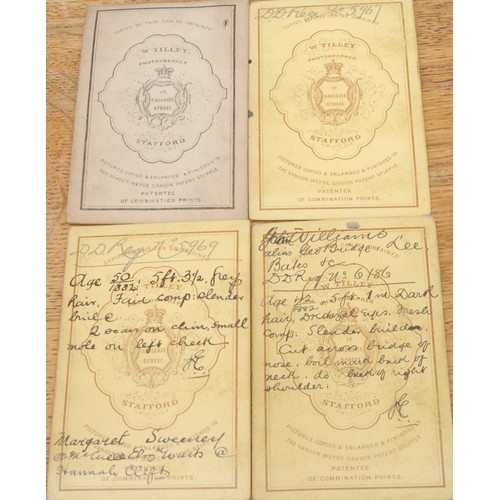 COPIES OF THIS CAN BE OBTAINED
W. TILLEY
PHOTOGRAPHER
17
EASTGATE
STREET
STAFFORD
PICTURES COPIED & ENLARGED & FINISHED IN
THE VANDER WEYDE CRAYON PATENT STIPPLE.
PATENTEE
OF COMBINATION PRINTS.
D.D. Reg. No 5961
W. TILLEY
PHOTOGRAPHER
17
EASTGATE
STREET
STAFFORD
PICTURES COPIED & ENLARGED & FINISHED IN
THE VANDER WEYDE CRAYON PATENT STIPPLE.
PATENTEE
OF COMBINATION PRINTS.
D.D. Reg. No 5969
Age 50/1882 5ft. 3½. Grey
hair, Fair comp: slender
build
2 scars on chin, small
mole on left cheek
STAFFORD
Margaret Sweeney
Hannah
PATENTEE
OF COMBINATION PRINTS.
John Williams
alias Geo Bridge Lee
Bates &c
D.D. Reg. No 6186
W. TILLEY
Age 42/1882 5 ft. 1 in Dark
hair, eyes. Fresh
comp: Slender build
Cut across bridge of
nose, boil mark back of
neck. do back of right
shoulder.
STAFFORD
PICTURES COPIED & ENLARGED & FINISHED IN
THE VANDER WEYDE CRAYON PATENT STIPPLE.
PATENTEE
OF COMBINATION PRINTS.